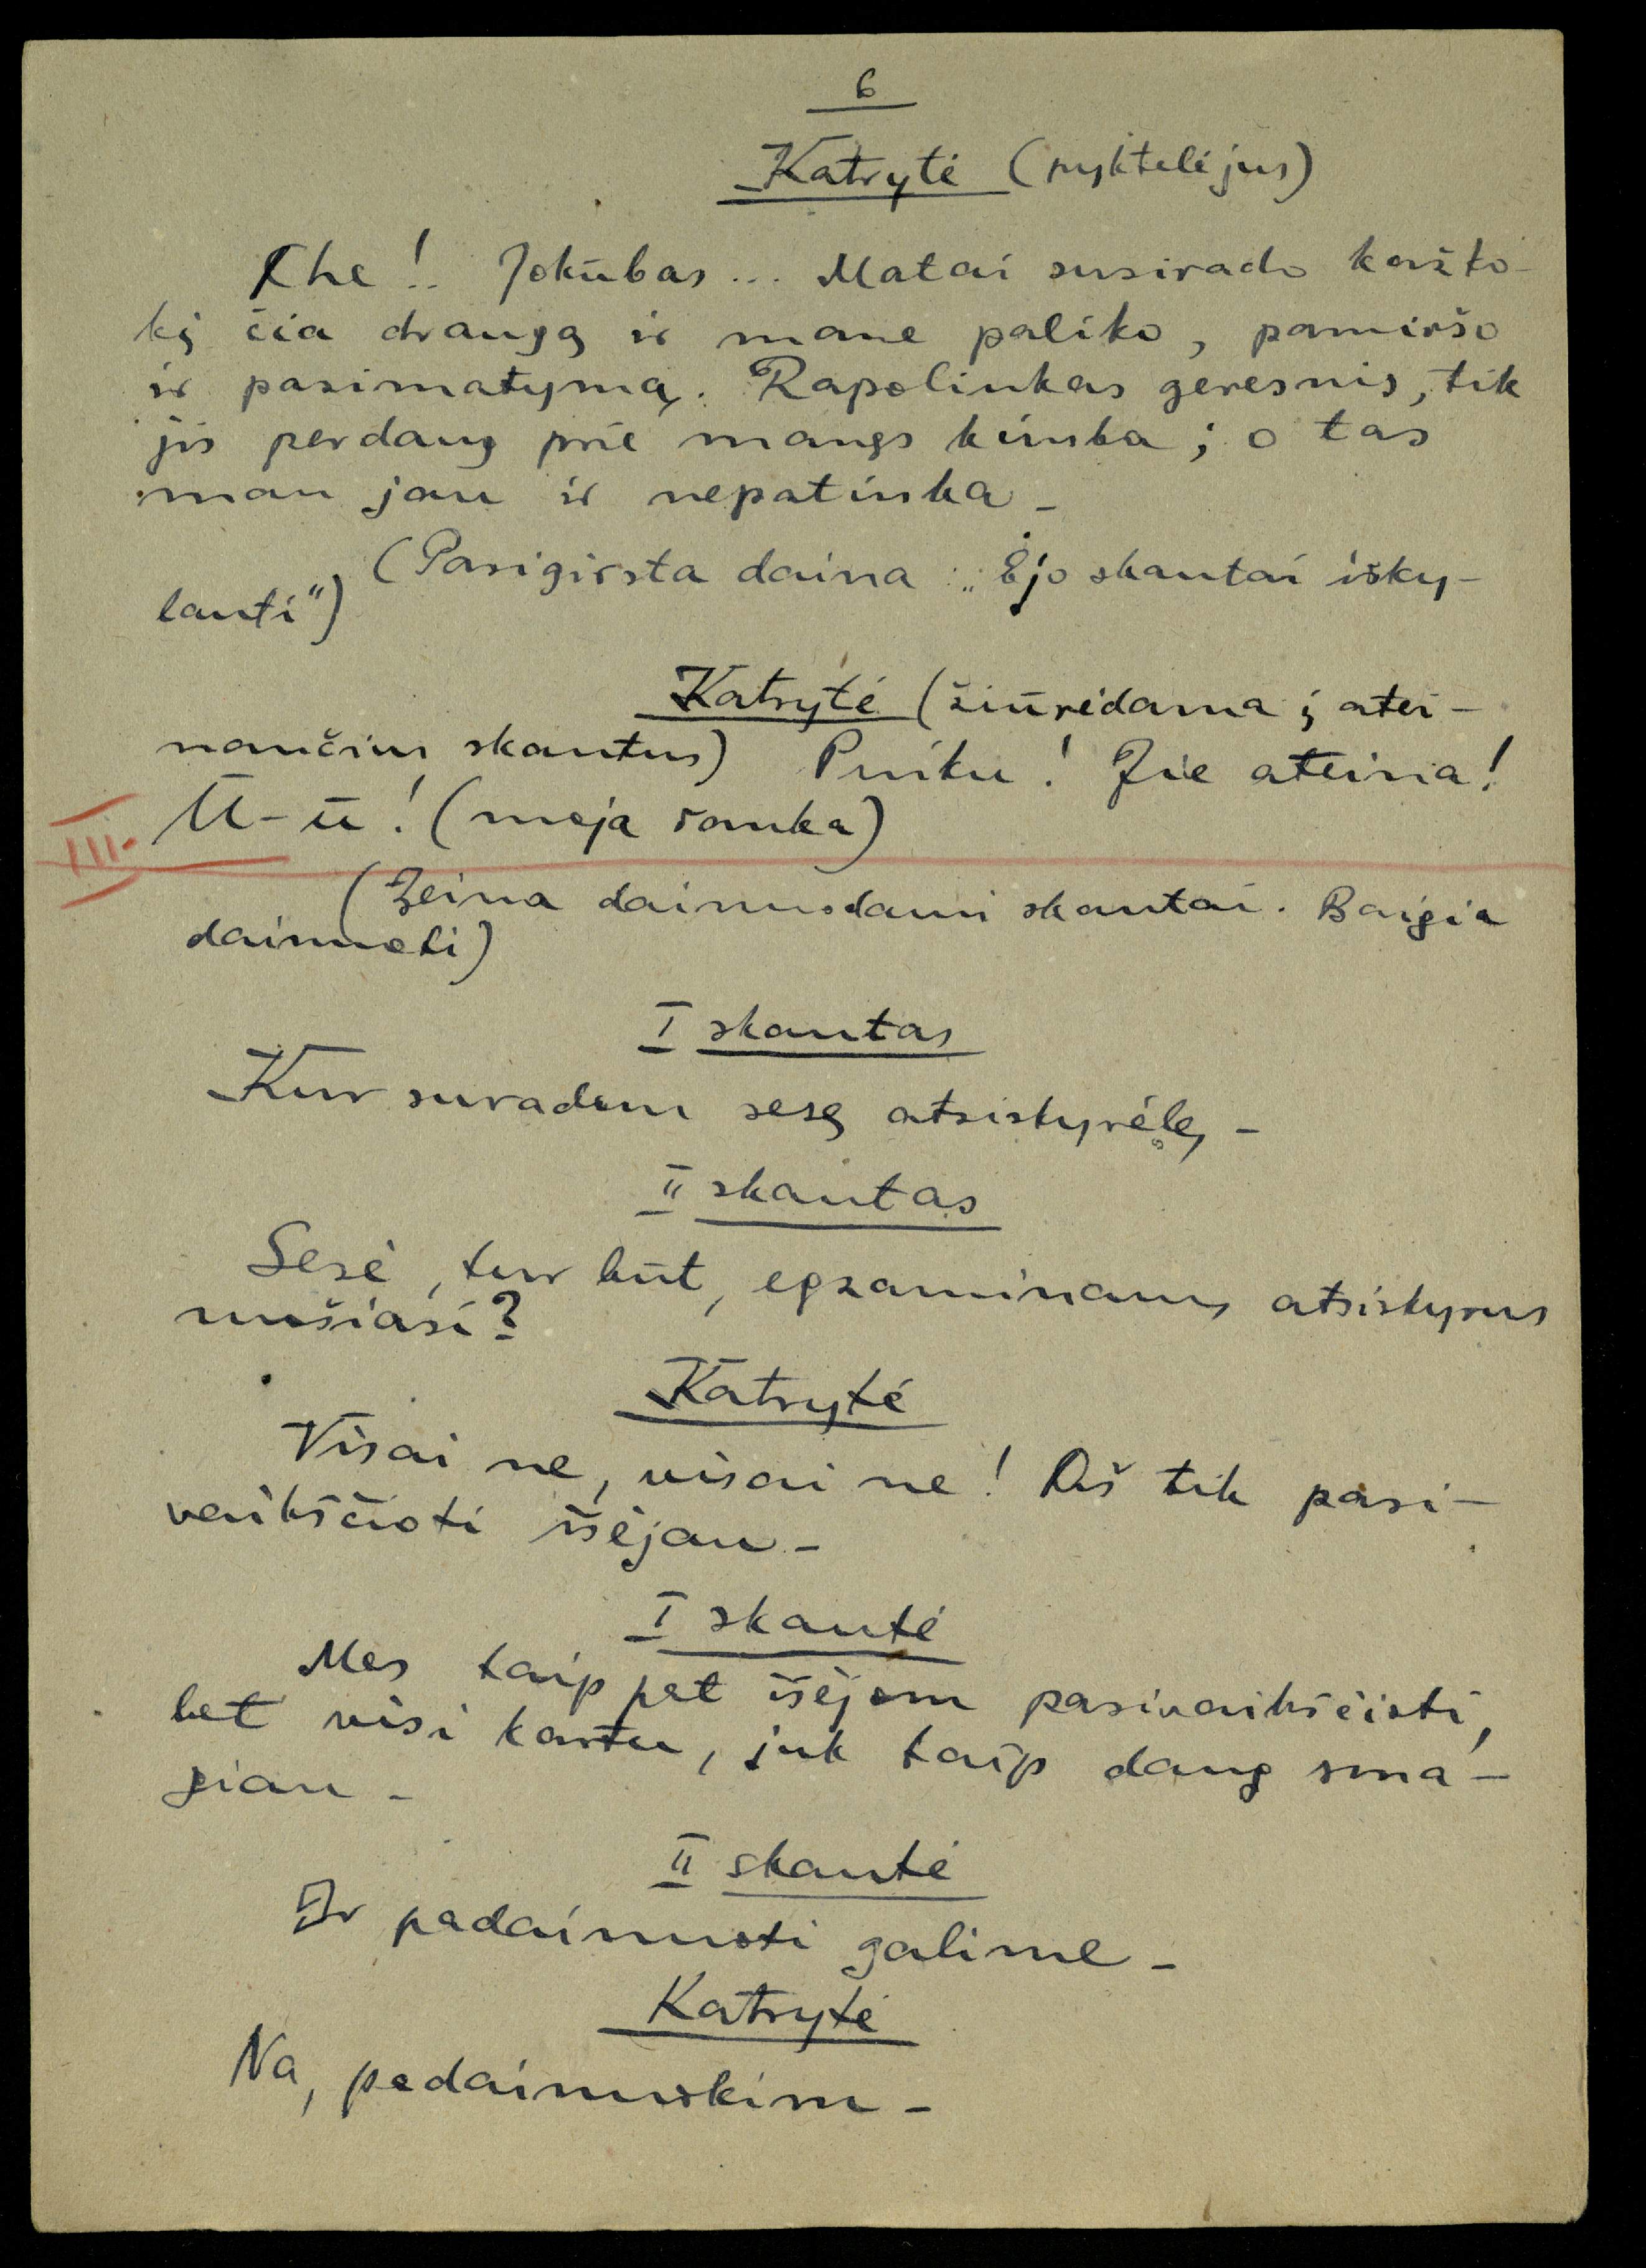 6
Katrytė (pyktelėjus)
Khe!.. Jokūbas... Matai susirado kažto-
kį čia draugą ir mane paliko, pamiršo
ir pasimatymą. Rapoliukas geresnis, tik
jis perdaug prie manęs kimba; o tas
man jau ir nepatinka –
(Pasigirsta daina: „Ėjo skautai išky-
lauti“)
Katrytė (žiūrėdama į atei-
nančius skautus) Puiku! Jie ateina!
Ū-ū! (moja ranka)
III.
(Įeina dainuodami skautai. Baigia
dainuoti)
I skautas
Kur suradom sesę atsiskyrėlę –
II skautas
Sesė, tur būt, egzaminams atsiskyrus
ruošiasi?
Katrytė
Visai ne, visai ne! Aš tik pasi-
vaikščioti išėjau –
I skautė
Mes taip pat išėjom pasivaikščioti,
bet visi kartu, juk taip daug sma-
giau –
II skautė
Ir padainuoti galime –
Katrytė
Na, padainuokim –